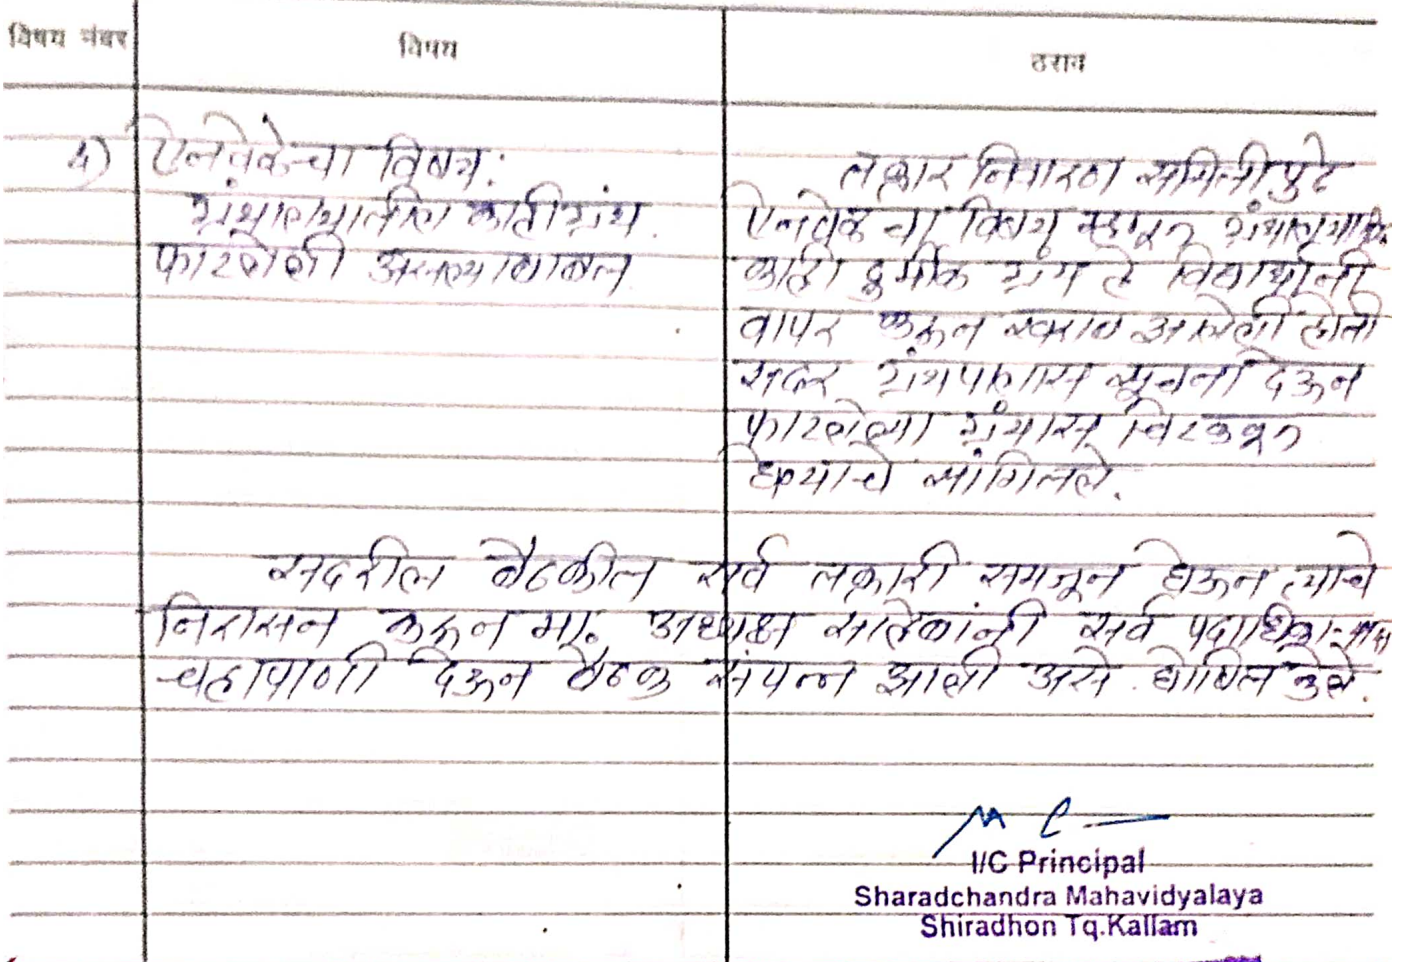 विषय नंबर
विषय
ठराव
५) ऐनवेळेचा विषय:
ग्रंथालयातील काही ग्रंथ.
फाटलेली असल्याबाबत
तक्रार निवारण समिती पुढे
ऐनवेळेचा विषय म्हणून
काही दुर्मीळ ग्रंथ हे विद्यार्थ्यांनी
वापर करून खराब झालेली होती
सदर ग्रंथपालास सूचना देऊन
फाटलेल्या ग्रंथास चिटकवून
घेण्याचे सांगितले.
सदरील बैठकीत सर्व तक्रारी समजून घेऊन त्याचे
निरासन करून मा. अध्यक्ष साहेबांनी सर्व
चहापाणी देऊन बैठक संपन्न झाली असे घोषित केले.
I/C Principal
Sharadchandra Mahavidyalaya
Shiradhon Tq.Kallam